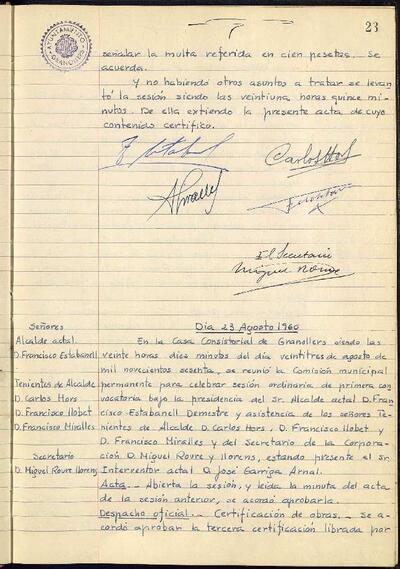 23
AYUNTAMIENTO
GRANOLLERS
señalar la multa referida en cien pesetas. Se
acuerda.
Y no habiendo otros asuntos a tratar se levan
tó la sesión siendo las veintiuna horas quince mi-
nutos. De ella extiendo la presente acta de cuyo
contenido certifico.
Carlos Hors
El Secretario
Miguel Roure
Señores
Dia 23 Agosto 1960
Alcalde actal.
En la Casa Consistorial de Granollers siendo las
D. Francisco Estabanell
veinte horas diez minutos del día veintitres de agosto de
mil novecientos sesenta, se reunió la Comisión municipal
Tenientes de Alcalde
permanente para celebrar sesión ordinaria de primera con
D. Carlos Hors
vocatoria bajo la presidencia del Sr. Alcalde actal D. Fran
D. Francisco Llobet
cisco Estabanell Demestre y asistencia de los señores Te-
D. Francisco Miralles
nientes de Alcalde D. Carlos Hors, D. Francisco Llobet y
D. Francisco Miralles y del Secretario de la Corpora-
Secretario
ción D. Miguel Roure y Llorens, estando presente el Sr.
D. Miguel Roure Llorens
Interventor actal D. José Garriga Arnal.
Acta.- Abierta la sesión, y leída la minuta del acta
de la sesión anterior, se acordó aprobarla.
Despacho oficial.- Certificación de obras.- Se a-
cordó aprobar la tercera certificación librada por